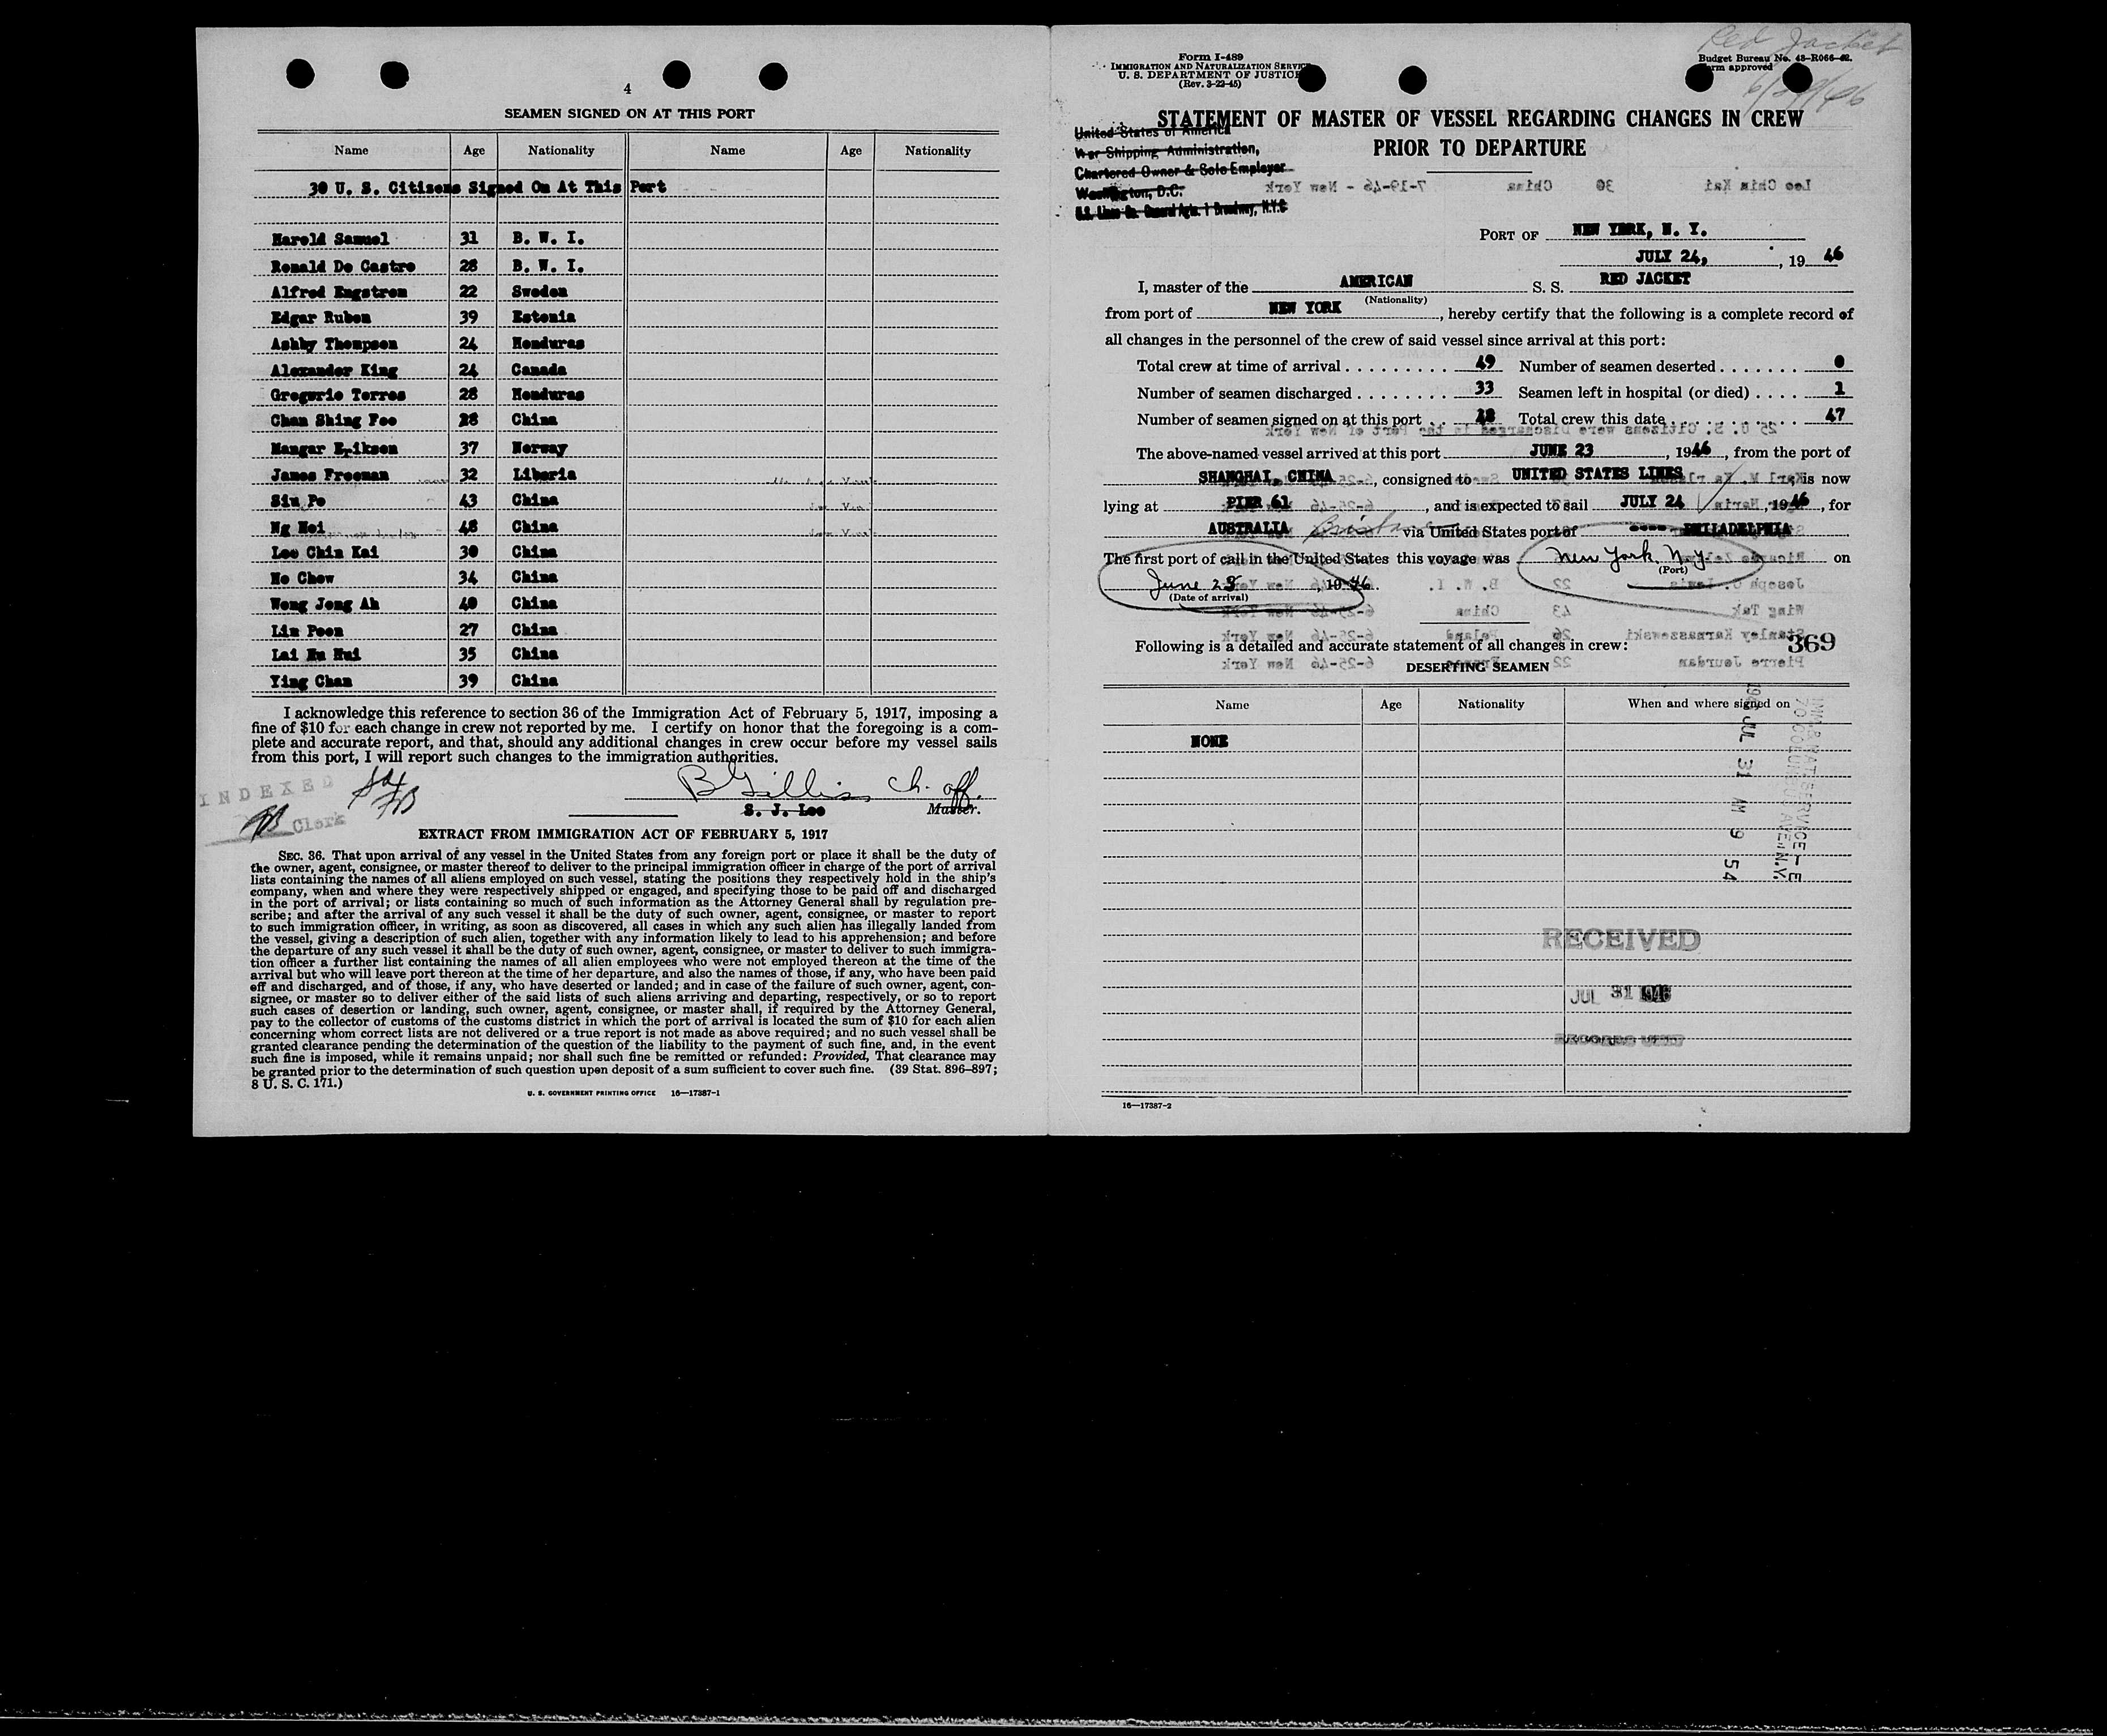 4
SEAMEN SIGNED ON AT THIS PORT
Name Age Nationality Name Age Nationality
30 U. S. Citizens Signed On At This Port
Harold Samuel 31 B. W. I.
Ronald De Castro 28 B. W. I.
Alfred Engstrom 22 Sweden
Edgar Ruben 39 Estonia
Ashby Thompson 24 Honduras
Alexander King 24 Canada
Gregorio Torres 28 Honduras
Chan Shing Foo 28 China
Hangar Eriksen 37 Norway
James Freeman 32 Liberia
Siu Po 43 China
Ng Hoi 48 China
Lee Chin Kai 30 China
Ho Chow 34 China
Wong Jong Ah 40 China
Lim Poon 27 China
Lai Hui 35 China
Ying Chan 39 China
I acknowledge this reference to section 36 of the Immigration Act of February 5, 1917, imposing a
fine of $10 for each change in crew not reported by me. I certify on honor that the foregoing is a com-
plete and accurate report, and that, should any additional changes in crew occur before my vessel sails
from this port, I will report such changes to the immigration authorities.
INDEXED
Clerk
B Gillis Ch. off.
S. J. Lee Master.
EXTRACT FROM IMMIGRATION ACT OF FEBRUARY 5, 1917
SEC. 36. That upon arrival of any vessel in the United States from any foreign port or place it shall be the duty of
the owner, agent, consignee, or master thereof to deliver to the principal immigration officer in charge of the port of arrival
lists containing the names of all aliens employed on such vessel, stating the positions they respectively hold in the ship's
company, when and where they were respectively shipped or engaged, and specifying those to be paid off and discharged
in the port of arrival; or lists containing so much of such information as the Attorney General shall by regulation pre-
scribe; and after the arrival of any such vessel it shall be the duty of such owner, agent, consignee, or master to report
to such immigration officer, in writing, as soon as discovered, all cases in which any such alien has illegally landed from
the vessel, giving a description of such alien, together with any information likely to lead to his apprehension; and before
the departure of any such vessel it shall be the duty of such owner, agent, consignee, or master to deliver to such immigra-
tion officer a further list containing the names of all alien employees who were not employed thereon at the time of the
arrival but who will leave port thereon at the time of her departure, and also the names of those, if any, who have been paid
off and discharged, and of those, if any, who have deserted or landed; and in case of the failure of such owner, agent, con-
signee, or master so to deliver either of the said lists of such aliens arriving and departing, respectively, or so to report
such cases of desertion or landing, such owner, agent, consignee, or master shall, if required by the Attorney General,
pay to the collector of customs of the customs district in which the port of arrival is located the sum of $10 for each alien
concerning whom correct lists are not delivered or a true report is not made as above required; and no such vessel shall be
granted clearance pending the determination of the question of the liability to the payment of such fine, and, in the event
such fine is imposed, while it remains unpaid; nor shall such fine be remitted or refunded: Provided, That clearance may
be granted prior to the determination of such question upon deposit of a sum sufficient to cover such fine. (39 Stat. 896-897;
8 U. S. C. 171.)
U. S. GOVERNMENT PRINTING OFFICE 16—17387-1
Red Jacket
Form I-489
IMMIGRATION AND NATURALIZATION SERVICE
U. S. DEPARTMENT OF JUSTICE
(Rev. 3-22-45)
Budget Bureau No. 43-R066-42.
Form approved
STATEMENT OF MASTER OF VESSEL REGARDING CHANGES IN CREW
PRIOR TO DEPARTURE
United States of America
War Shipping Administration,
Chartered Owner & Sole Employer
Washington, D.C.
U.S. Lines Co. General Agts. 1 Broadway, N.Y.C
PORT OF NEW YORK, N. Y.
JULY 24, , 19 46
I, master of the AMERICAN S. S. RED JACKET
(Nationality)
from port of NEW YORK , hereby certify that the following is a complete record of
all changes in the personnel of the crew of said vessel since arrival at this port:
Total crew at time of arrival 49 Number of seamen deserted 0
Number of seamen discharged 33 Seamen left in hospital (or died) 1
Number of seamen signed on at this port 48 Total crew this date 47
The above-named vessel arrived at this port JUNE 23 , 1946 , from the port of
SHANGHAI, CHINA , consigned to UNITED STATES LINES , is now
lying at PIER 61 , and is expected to sail JULY 24 , 1946 , for
AUSTRALIA via United States port of PHILADELPHIA
The first port of call in the United States this voyage was New York, N.Y. on
(Port)
June 23 , 1946.
(Date of arrival)
369
Following is a detailed and accurate statement of all changes in crew:
DESERTING SEAMEN
Name Age Nationality When and where signed on
NONE
1946 JUL 31 AM 9 54
IMM. & NAT. SERVICE—E
70 COLUMBUS AVE., N.Y.
RECEIVED
JUL 31 1946
RECORDS UNIT
16—17387-2